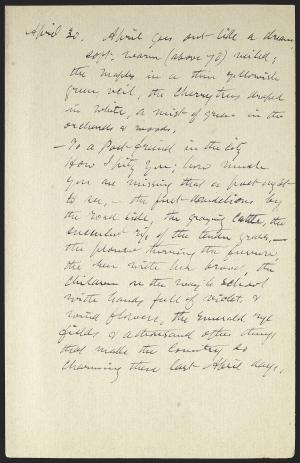 April 30. April goes out like a dream
soft, warm (above 70) veiled;
the maples in a thin yellowish
green veil, the cherry trees draped
in white, a mist of green in the
orchards & woods.
— To a Poet-friend in the City
How I pity you; how much
you are missing that a poet ought
to see, — the first dandelions by
the road side, the grazing cattle, the
succulent rye of the tender grass, —
the plower turning the furrow,
the hen with her brood, the
children on the way to school
with hands full of violets &
wind flowers, the emerald rye
fields & a thousand other things
that make the country so
charming these last April days.